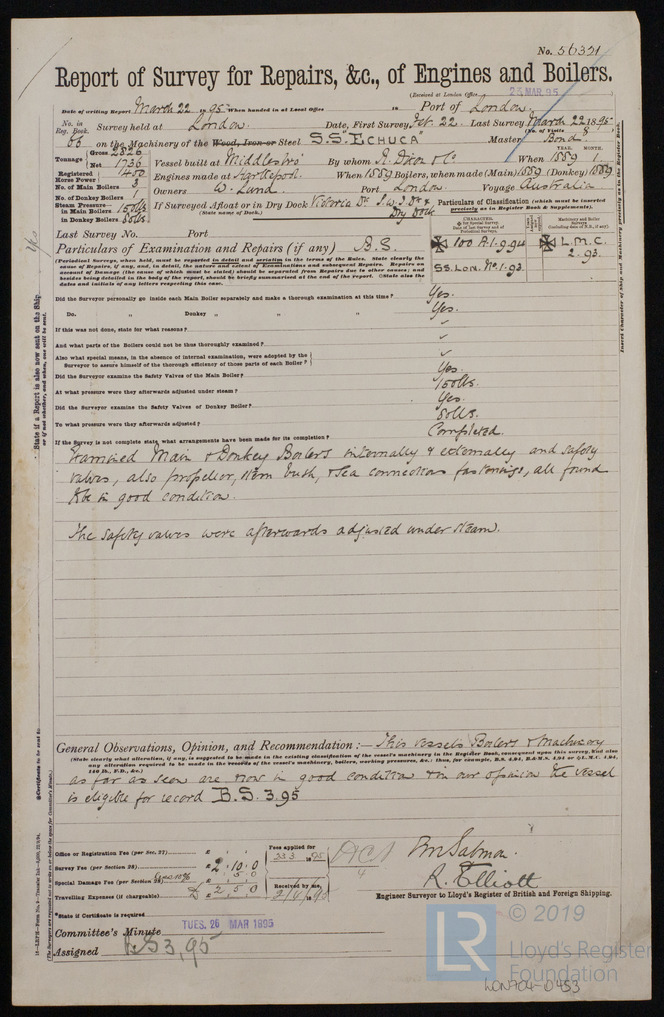 No. 56331
Report of Survey for Repairs, &c., of Engines and Boilers.
(Received at London Office 23 MAR. 95)
Date of writing Report March 22 1895 When handed in at Local Office 18 Port of London.
No. in Reg. Book. Survey held at London. Date, First Survey Feb. 22. Last Survey March 22 1895
(No. of Visits 8)
55 on the Machinery of the Wood, Iron or Steel S.S. "ECHUCA" Master Bond
Tonnage Gross 2826 Net 1736 Vessel built at Middlesbro' By whom R. Dixon & Co When 1889 YEAR. MONTH. 1
Registered Horse Power 400 Engines made at Hartlepool. When 1889 Boilers, when made (Main) 1889 (Donkey) 1889
No. of Main Boilers 3 Owners W. Lund. Port London. Voyage Australia
No. of Donkey Boilers 1
Steam Pressure— in Main Boilers 150 lbs in Donkey Boilers
If Surveyed Afloat or in Dry Dock Victoria Dk & Dry Dock
(State name of Dock.)
Particulars of Classification (which must be inserted precisely as in Register Book & Supplements).
100 A.1. 9.94 L.M.C. 2.93.
SS. LON. No. 1-93.
Last Survey No. Port
Particulars of Examination and Repairs (if any) B.S.
(Periodical Surveys, when held, must be reported in detail and seriatim in the terms of the Rules. State clearly the
cause of Repairs, if any, and, in detail, the nature and extent of Examinations and subsequent Repairs. Repairs on
account of Damage (the cause of which must be stated) should be separated from Repairs due to other causes; and
besides being detailed in the body of the report, should be briefly summarised at the end of the report. State also the
dates and initials of any letters respecting this case.
Did the Surveyor personally go inside each Main Boiler separately and make a thorough examination at this time? Yes.
Do. „ Donkey „ „ „ Yes.
If this was not done, state for what reasons?
And what parts of the Boilers could not be thus thoroughly examined?
Also what special means, in the absence of internal examination, were adopted by the
Surveyor to assure himself of the thorough efficiency of those parts of each Boiler?
Did the Surveyor examine the Safety Valves of the Main Boiler? Yes.
At what pressure were they afterwards adjusted under steam? 150 lbs.
Did the Surveyor examine the Safety Valves of Donkey Boiler? Yes.
To what pressure were they afterwards adjusted? 80 lbs.
If the Survey is not complete state what arrangements have been made for its completion? Completed.
Examined Main & Donkey Boilers internally & externally and safety
valves, also propeller, stern bush, & sea connections fastenings, all found
in good condition.
The safety valves were afterwards adjusted under steam.
General Observations, Opinion, and Recommendation:— This vessel's Boilers & Machinery
(State clearly what alteration, if any, is suggested to be made in the existing classification of the vessel's machinery in the Register Book, consequent upon this survey, and also
any alterations required to be made in the records of the vessel's machinery, boilers, working pressures, &c.: thus, for example, B.S. 4.94, B.&M.S. 4.94 or L.M.C. 4.94,
140 lb., F.D., &c.)
as far as seen are now in good condition & in our opinion the vessel
is eligible for record B.S. 3.95
Office or Registration Fee (per Sec. 27) £ : :
Survey Fee (per Section 28) £ 2 : 10 : 0
Special Damage Fee (per Section 28) Less 10% £ 5 : 0
Travelling Expenses (if chargeable) £ 2 5 0
Fees applied for 23.3 1895
Received by me,
R. Elliott
Engineer Surveyor to Lloyd's Register of British and Foreign Shipping.
State if Certificate is required
Committee's Minute TUES. 26 MAR 1895
Assigned BS 3,95
State if a Report is also now sent on the Ship, or if not whether, and when, one will be sent. Yes
Certificate to be sent to
Insert Character of Ship and Machinery precisely as in the Register Book.
LR © 2019
Lloyd's Register
Foundation
LON704-0453